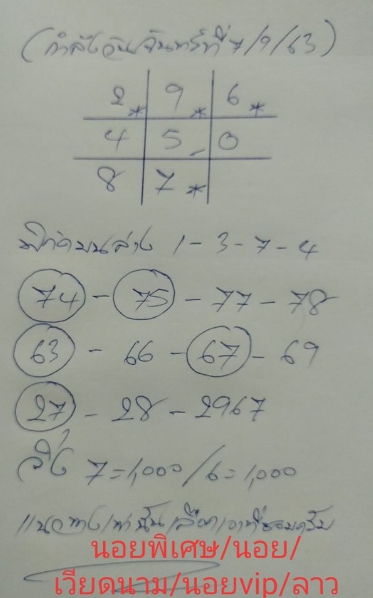 (กำลังวันจันทร์ที่ 7/9/63)
2* 9* 6*
4 5- 0
8 7*
บนล่าง 1-3-7-4
74 - 75 - 77 - 78
63 - 66 - 67 - 69
27 - 28 - 2967
วิ่ง 7=1,000/6=1,000
แนวทางเท่านั้นเลือกเอาที่ชอบครับ
นอยพิเศษ/นอย/
เวียดนาม/นอยvip/ลาว